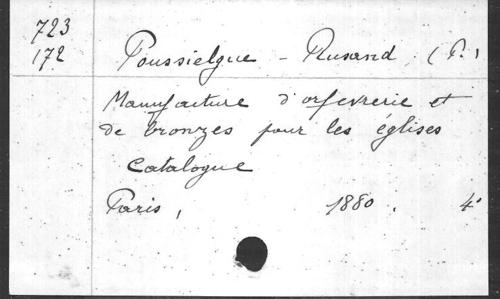 723
172
Poussielgue - Rusand (P.)
Manufacture d'orfevrerie et
de bronzes pour les églises
Catalogue
Paris, 1880. 4°